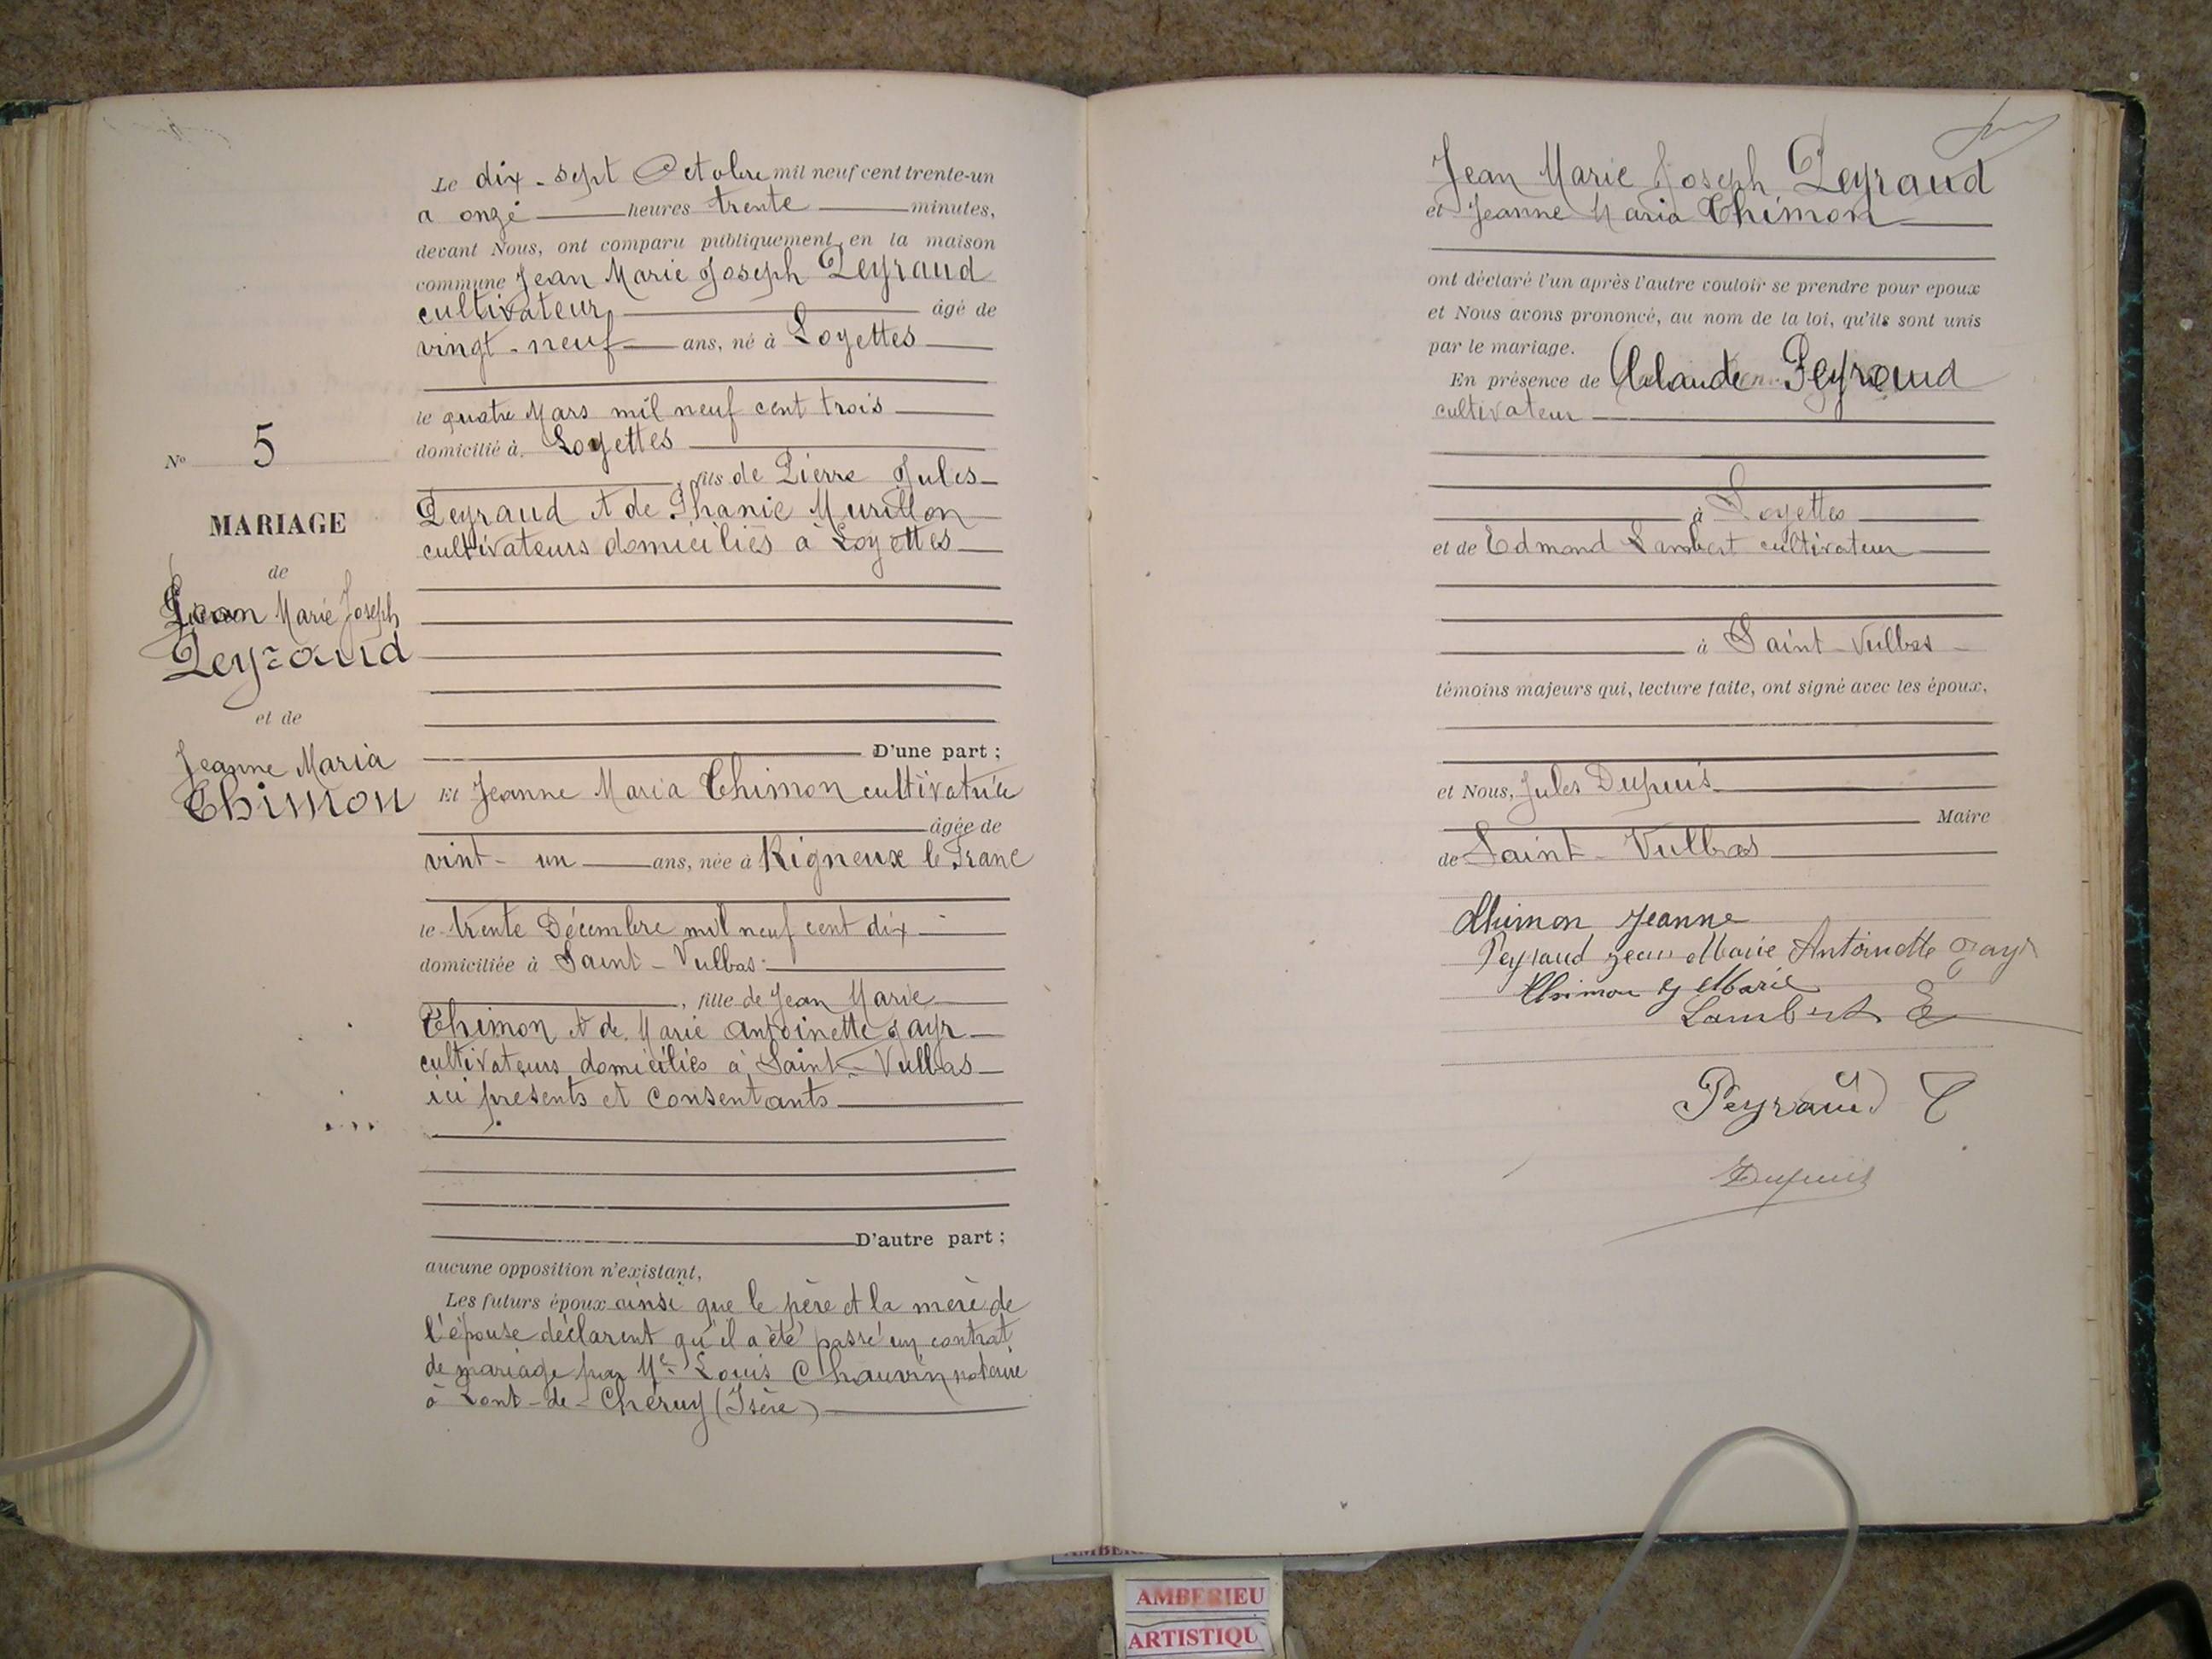 Le dix-sept Octobre mil neuf cent trente-un
a onze heures trente minutes,
devant Nous, ont comparu publiquement en la maison
commune Jean Marie Joseph Peyraud
cultivateur âgé de
vingt-neuf ans, né à Loyettes
le quatre Mars mil neuf cent trois
domicilié à Loyettes
, fils de Pierre Jules
Peyraud et de Phanie Murillon
cultivateurs domiciliés à Loyettes
D'une part ;
Et Jeanne Maria Thimon cultivatrice
âgée de
vint-un ans, née à Rigneux le Franc
le trente Décembre mil neuf cent dix
domiciliée à Saint-Vulbas
, fille de Jean Marie
Thimon et de Marie Antoinette Jayr
cultivateurs domiciliés à Saint-Vulbas
ici présents et consentants
D'autre part ;
aucune opposition n'existant,
Les futurs époux ainsi que le père et la mère de
l'épouse déclarent qu'il a été passé un contrat
de mariage par Me Louis Chauvin notaire
à Pont-de-Chéruy (Isère)
No 5
MARIAGE
de
Jean Marie Joseph
Peyraud
et de
Jeanne Maria
Thimon
Jean Marie Joseph Peyraud
et Jeanne Maria Thimon
ont déclaré l'un après l'autre vouloir se prendre pour époux
et Nous avons prononcé, au nom de la loi, qu'ils sont unis
par le mariage.
En présence de Claude Peyraud
cultivateur
à Loyettes
et de Edmond Lambert cultivateur
à Saint-Vulbas
témoins majeurs qui, lecture faite, ont signé avec les époux,
et Nous, Jules Dupuis
Maire
de Saint-Vulbas
Thimon Jeanne
Peyraud Jean Marie Antoinette Jayr
Thimon J Marie
Lambert E
Peyraud C
Dupuis
AMBERIEU
ARTISTIQU